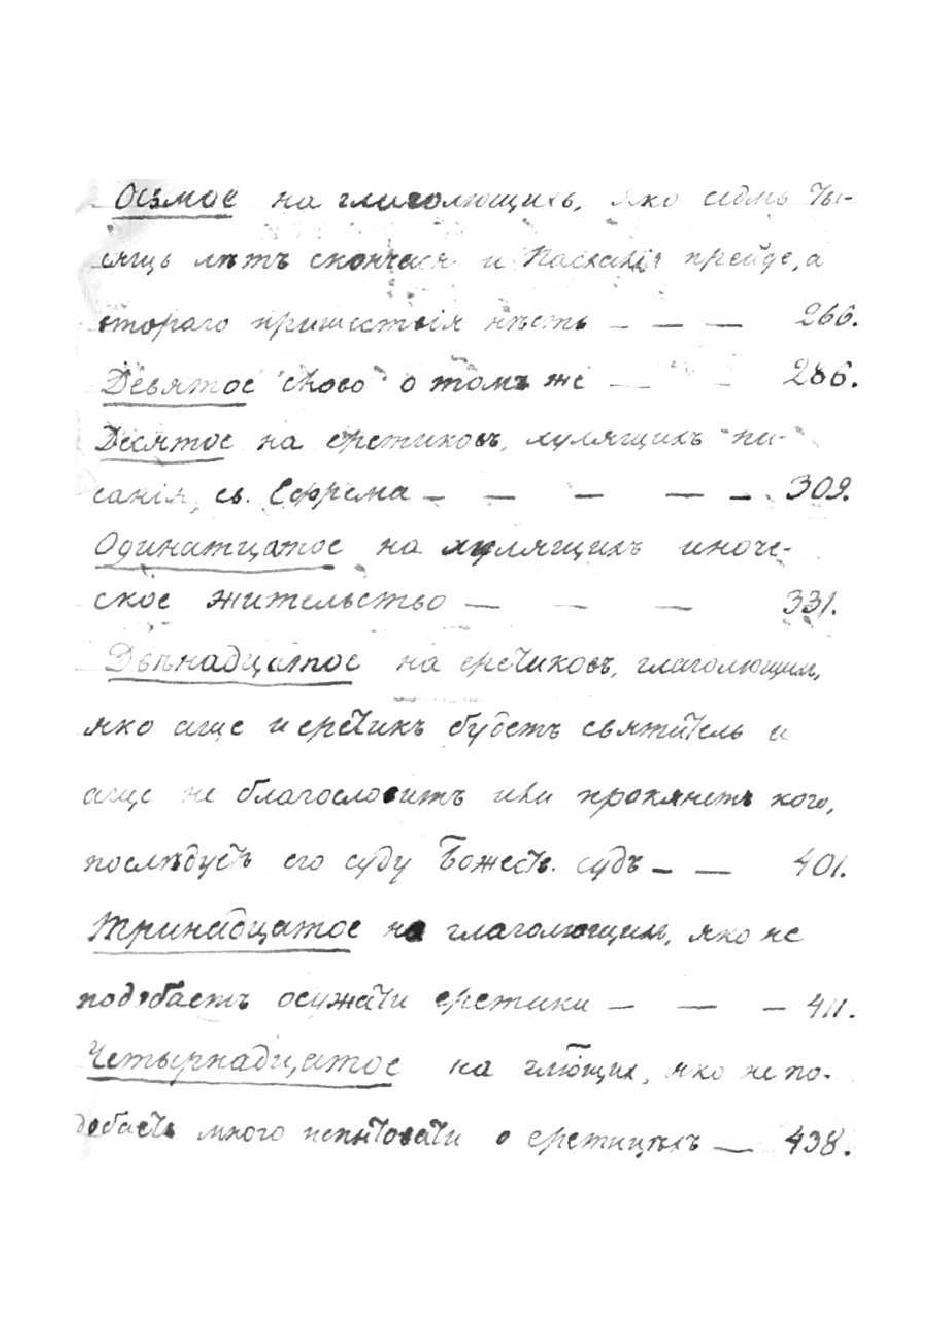 Осьмое на глаголющихъ, яко седмь ты-
сящь лѣтъ скончася и Пасхалія прейде, а
втораго пришествія нѣсть — — — 266.
Девятое слово о томъ же — — 286.
Десятое на еретиковъ, хулящихъ пи-
санія св. Ефрема — — — — — 309.
Одинатцатое на хулящихъ иноче-
ское жительство — — — 331.
Двѣнадцатое на еретиковъ, глаголющих,
яко аще и еретикъ будетъ святитель и
аще не благословитъ или проклянетъ кого,
послѣдуетъ его суду Божеств. судъ — — 401.
Тринадцатое на глаголющих, яко не
подобаетъ осужати еретики — — — 411.
Четырнадцатое на глющих, яко не по-
добаетъ много испытовати о еретицѣхъ — 438.